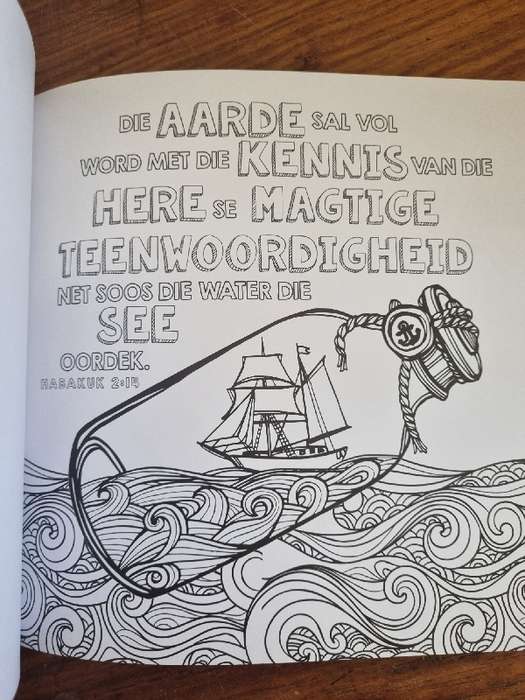 DIE AARDE SAL VOL
WORD MET DIE KENNIS VAN DIE
HERE SE MAGTIGE
TEENWOORDIGHEID
NET SOOS DIE WATER DIE
SEE
OORDEK.
HABAKUK 2:14